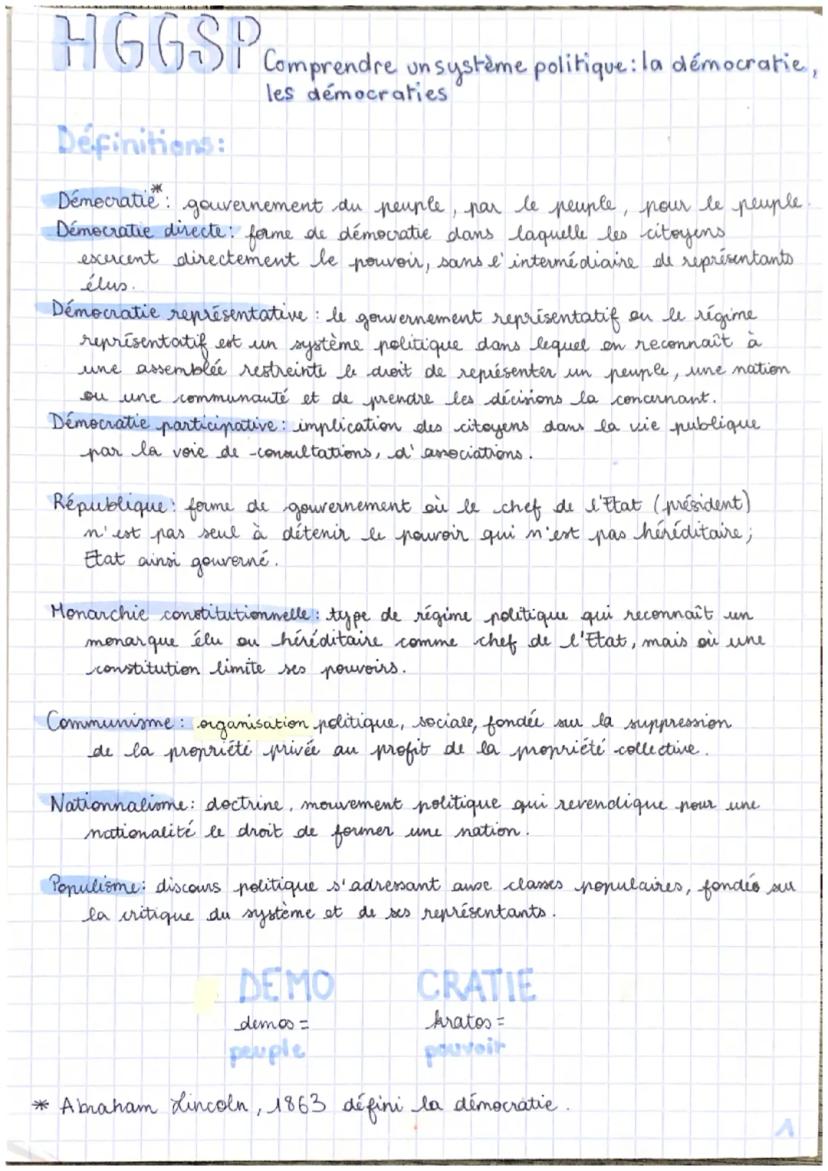 HGGSP
Comprendre un système politique: la démocratie,
les démocraties
Définitions:
Démocratie*: gouvernement du peuple, par le peuple, pour le peuple.
Démocratie directe: forme de démocratie dans laquelle les citoyens
exercent directement le pouvoir, sans l'intermédiaire de représentants
élus.
Démocratie représentative: le gouvernement représentatif ou le régime
représentatif est un système politique dans lequel on reconnaît à
une assemblée restreinte le droit de représenter un peuple, une nation
ou une communauté et de prendre les décisions la concernant.
Démocratie participative: implication des citoyens dans la vie publique
par la voie de consultations, d'associations.
République: forme de gouvernement où le chef de l'Etat (président)
n'est pas seul à détenir le pouvoir qui n'est pas héréditaire;
Etat ainsi gouverné.
Monarchie constitutionnelle: type de régime politique qui reconnaît un
monarque élu ou héréditaire comme chef de l'Etat, mais où une
constitution limite ses pouvoirs.
Communisme: organisation politique, sociale, fondée sur la suppression
de la propriété privée au profit de la propriété collective.
Nationnalisme: doctrine, mouvement politique qui revendique pour une
nationalité le droit de former une nation.
Populisme: discours politique s'adressant aux classes populaires, fondés sur
la critique du système et de ses représentants.
DEMO CRATIE
demos= kratos=
peuple pouvoir
* Abraham Lincoln, 1863 défini la démocratie.
1